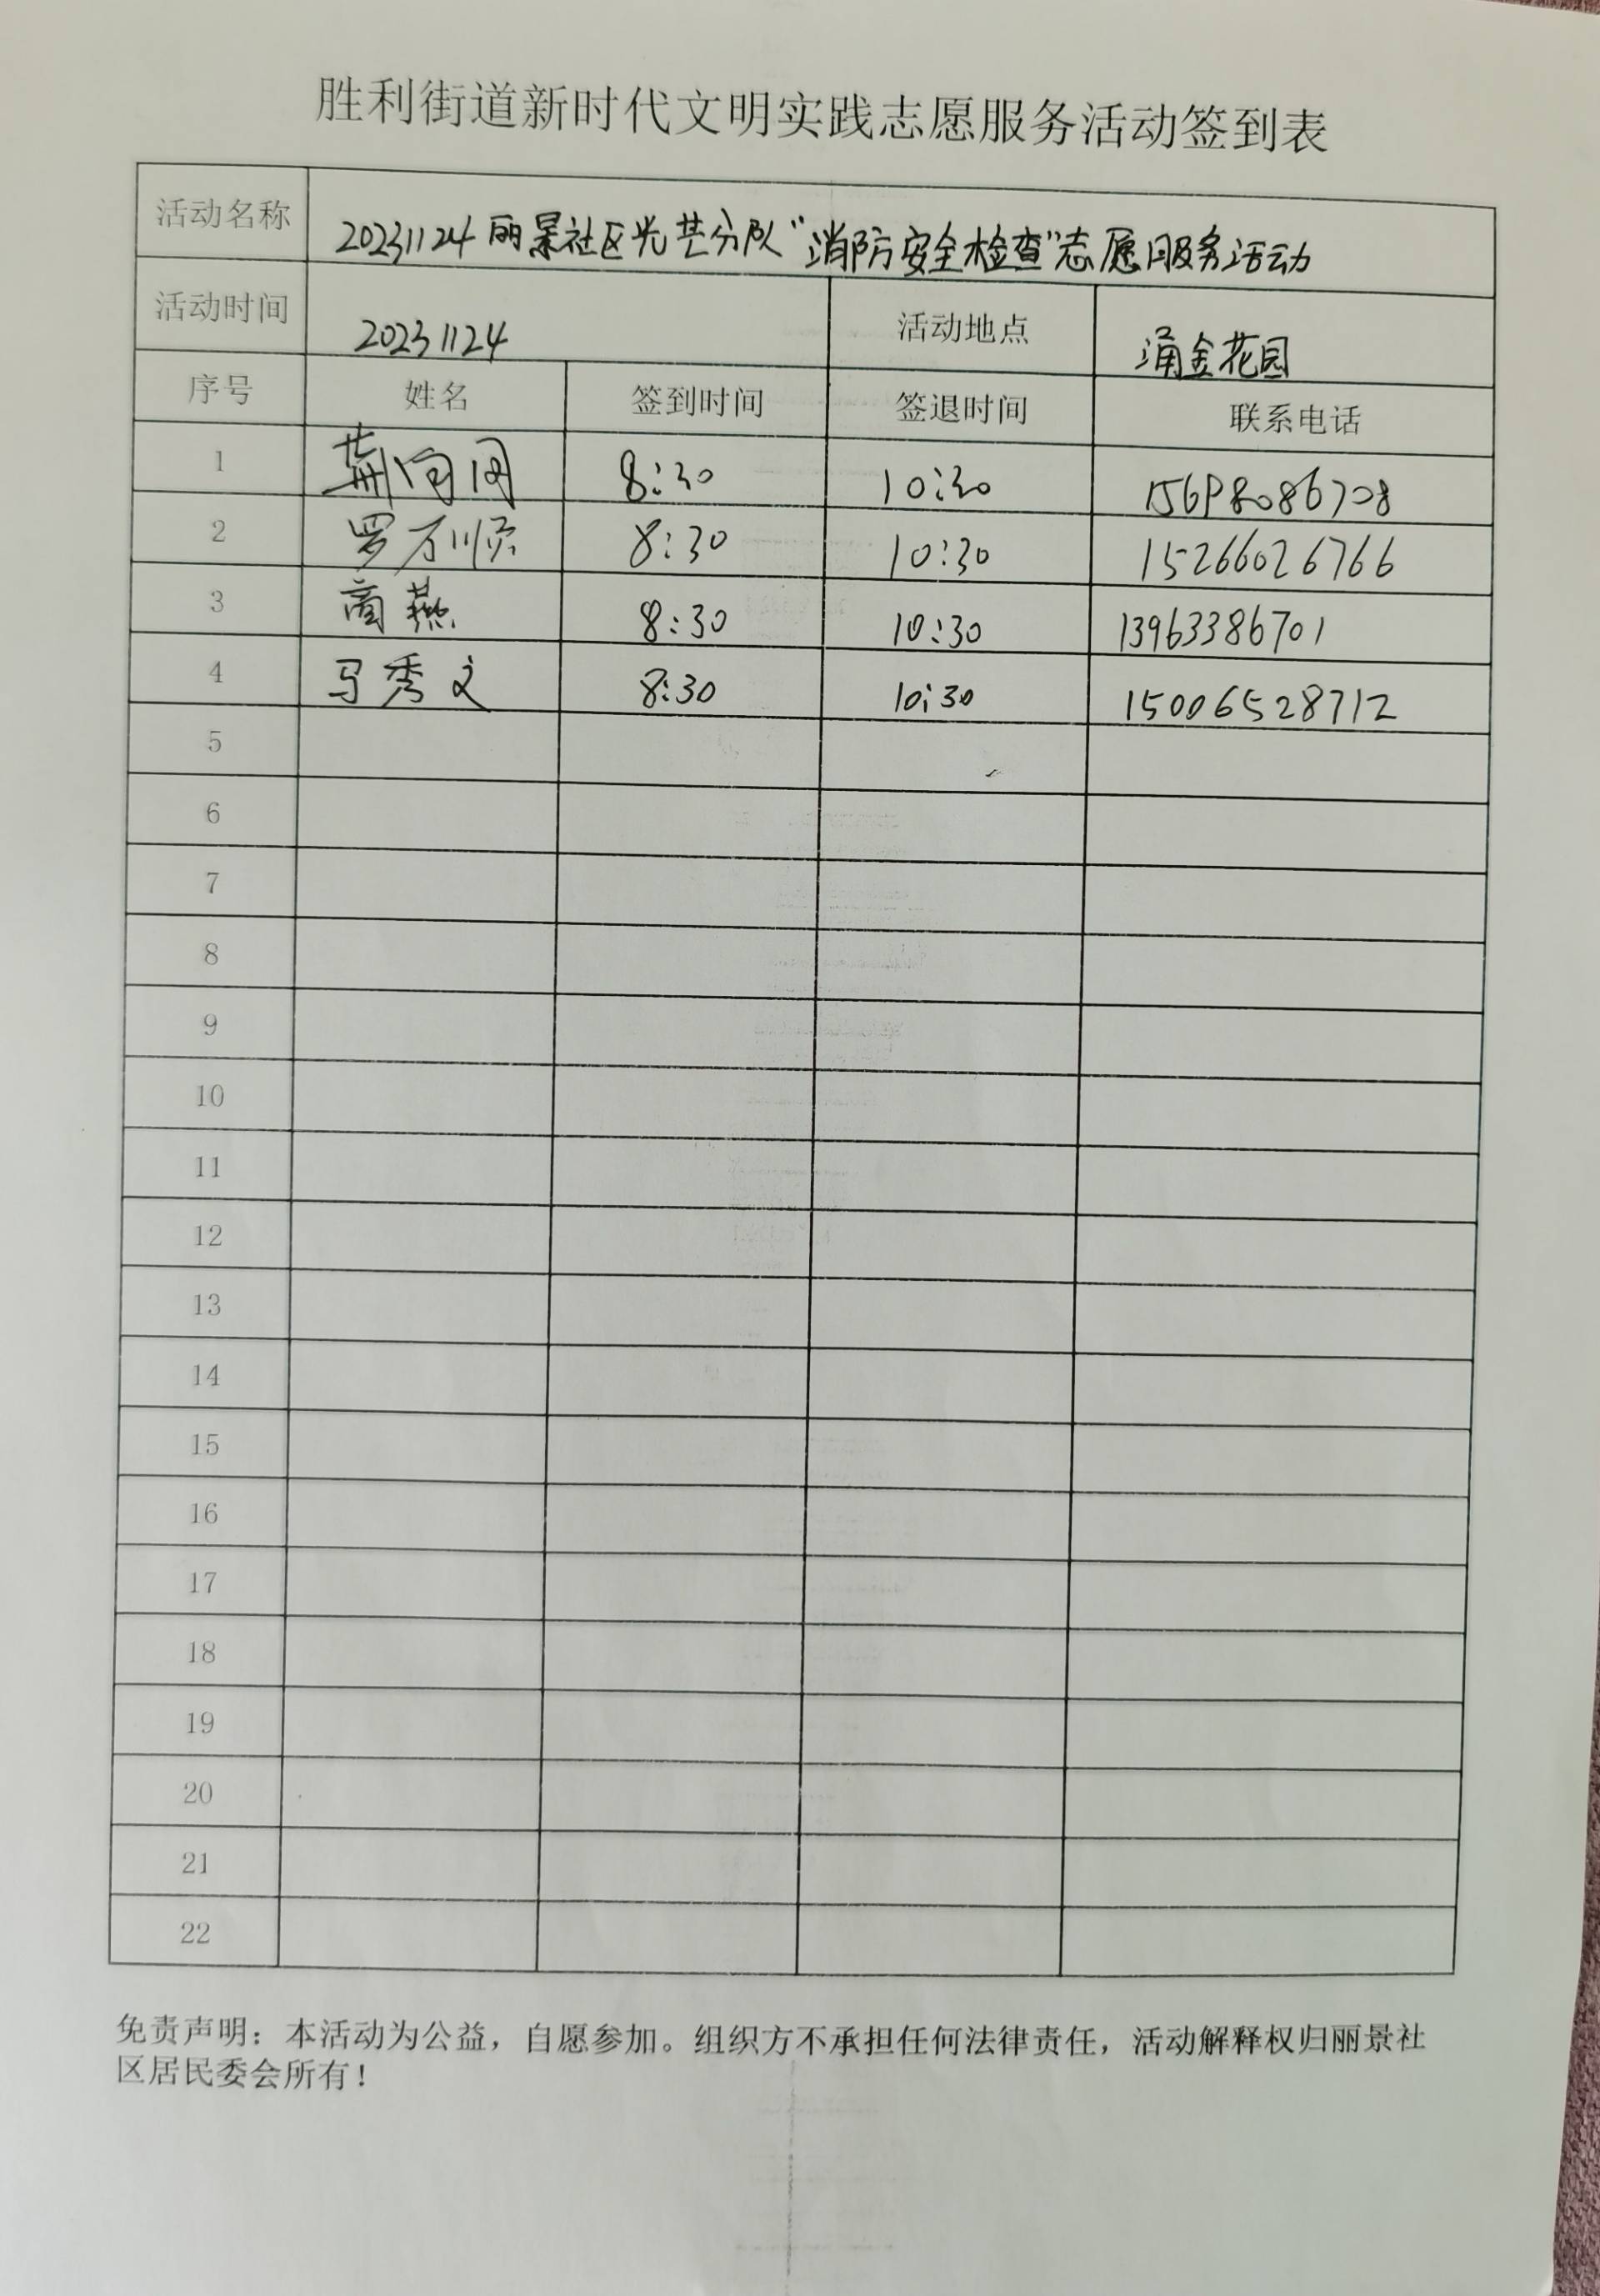 胜利街道新时代文明实践志愿服务活动签到表
活动名称 20231124丽景社区光芒分队“消防安全检查”志愿服务活动
活动时间 20231124 活动地点 涌金花园
序号 姓名 签到时间 签退时间 联系电话
1 8:30 10:30 15698086708
2 罗万顺 8:30 10:30 15266026766
3 商燕 8:30 10:30 13963386701
4 马秀文 8:30 10:30 15006528712
5
6
7
8
9
10
11
12
13
14
15
16
17
18
19
20
21
22
免责声明：本活动为公益，自愿参加。组织方不承担任何法律责任，活动解释权归丽景社
区居民委会所有！